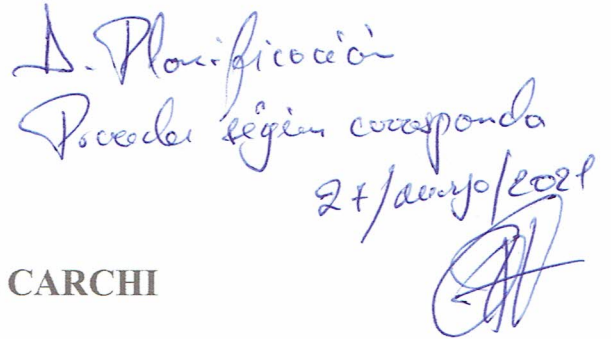 D. Planificación
Proceder según corresponda
27/mayo/2021
CARCHI